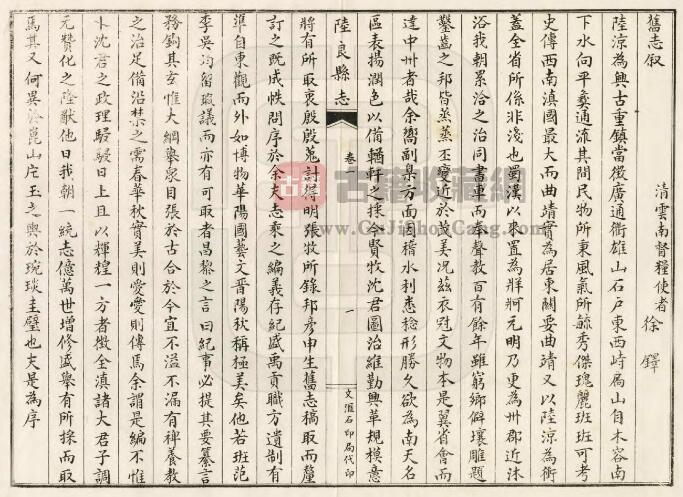 舊志叙
清雲南督糧使者徐鐸
陸涼為興古重鎮當徵廣通衢雄山石戸東西峙扃山自木容南
下水向平彝通流其間民物所東風氣所毓秀傑瑰麗班班可考
史傳西南滇國最大而曲靖實為居東關要曲靖又以陸涼為衝
蓋全省所係非淺也蜀漢以來置為牂牁元明乃更為州郡近沐
浴我朝累洽之治同書車而奉聲教百有餘年雖窮鄉僻壤雕題
鑿齒之邦皆蒸蒸丕變近於茂美況茲衣冠文物本是翼省會而
達中州者哉余嚮副臬方面因稽水利悉稔形勝久欲為南天名
區表揚潤色以備輶軒之採今賢牧沈君圖治維勤興革規模意
陸良縣志
卷一
一
文滙石印局代印
將有所取衷殷殷蒐討得明張牧所錄邦彥申生舊志稿取而釐
訂之既成帙問序於余夫志乘之編義存紀盛禹貢職方遺制有
準自東觀而外如博物華陽國藝文晋陽秋稱極美矣他若班范
李吳均留瑕議而亦有可取者昌黎之言曰紀事必提其要纂言
務鉤其玄惟大綱舉衆目張於古合於今宜不溢不漏有裨養教
之治足備沿禁之需春華秋實美則愛愛則傳焉余謂是編不惟
卜沈君之政理駸駸日上且以輝煌一方者徵全滇諸大君子調
元贊化之隆猷他日我朝一統志億萬世增修盛舉有所採而取
焉其又何異於崑山片玉之輿於琬琰圭璧也夫是為序
古籍收藏網
www.GuJiShouCang.com